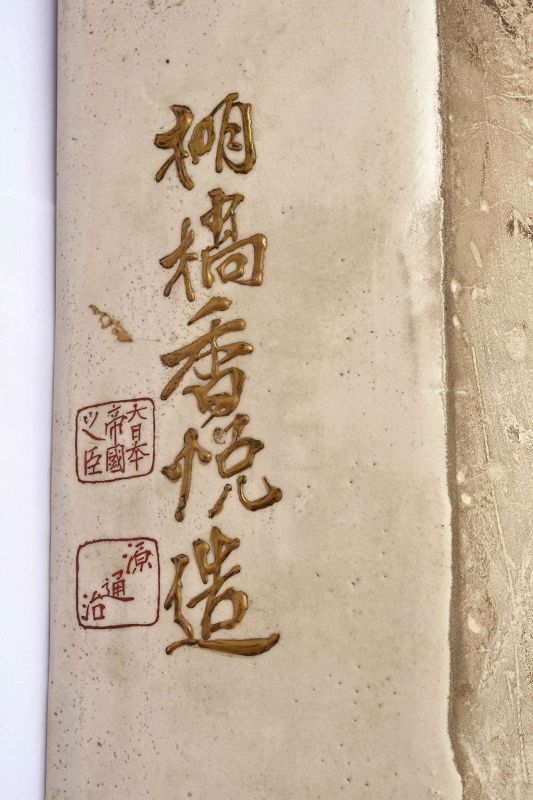 棚橋香悦造
大日本
帝國
之臣
源
通
治